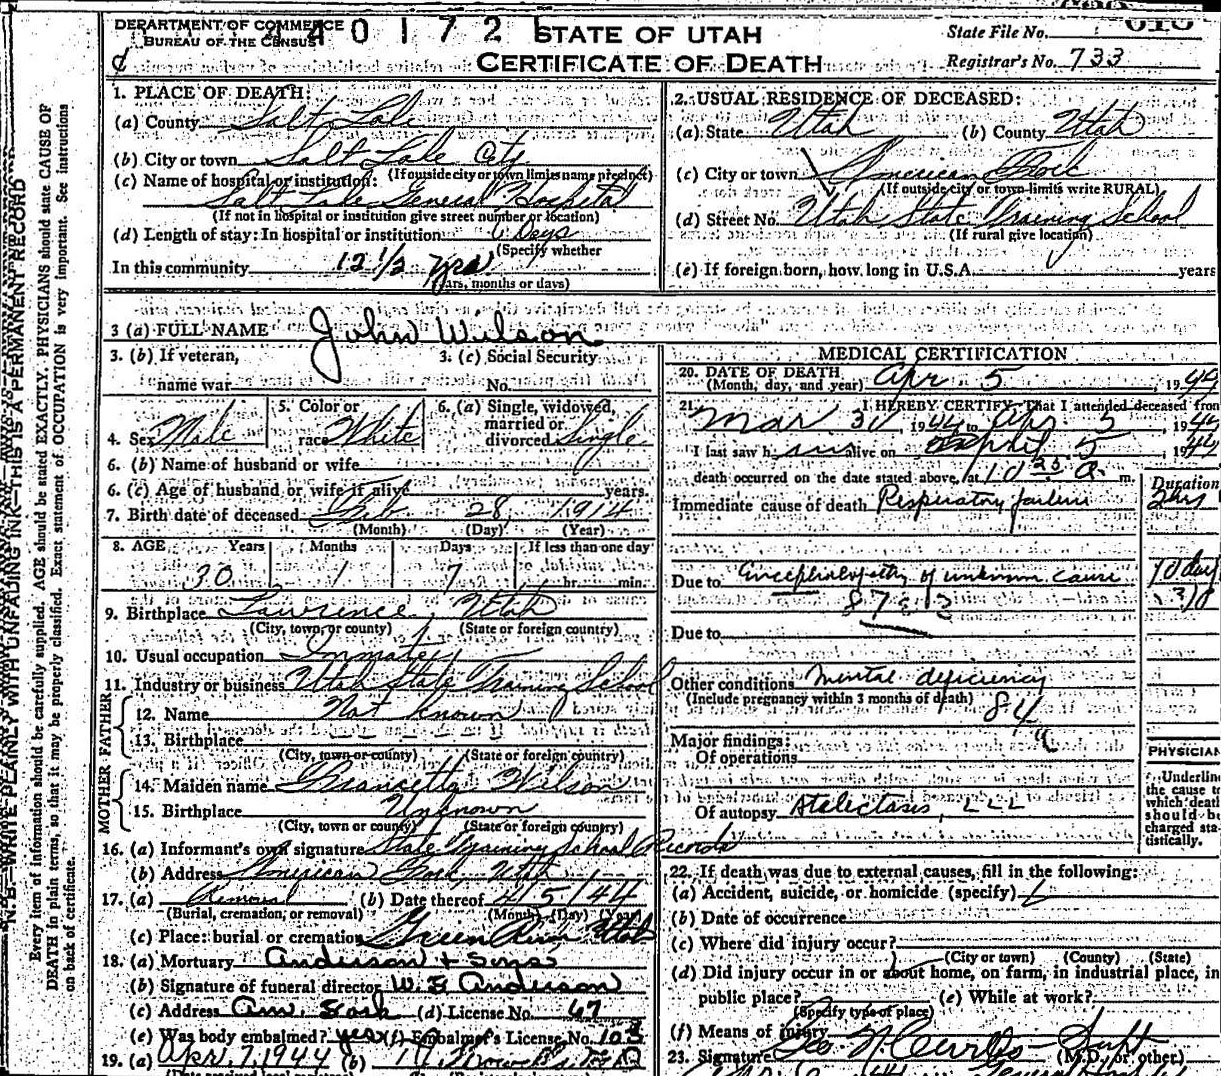 DEPARTMENT OF COMMERCE
BUREAU OF THE CENSUS
4 4 0 1 7 2
STATE OF UTAH
CERTIFICATE OF DEATH
State File No.
Registrar's No. 733
N.B.—WRITE PLAINLY WITH UNFADING INK—THIS IS A PERMANENT RECORD
Every item of information should be carefully supplied. AGE should be stated EXACTLY. PHYSICIANS should state CAUSE OF
DEATH in plain terms, so that it may be properly classified. Exact statement of OCCUPATION is very important. See instructions
on back of certificate.
1. PLACE OF DEATH:
(a) County Salt Lake
(b) City or town Salt Lake City
(If outside city or town limits name precinct)
(c) Name of hospital or institution:
Salt Lake General Hospital
(If not in hospital or institution give street number or location)
(d) Length of stay: In hospital or institution 6 Days
(Specify whether
In this community 12 1/2 yrs
years, months or days)
2. USUAL RESIDENCE OF DECEASED:
(a) State Utah (b) County Utah
(c) City or town American Fork
(If outside city or town limits write RURAL)
(d) Street No. Utah State Training School
(If rural give location)
(e) If foreign born, how long in U.S.A. years
3 (a) FULL NAME John Wilson
3. (b) If veteran,
name war
3. (c) Social Security
No.
4. Sex Male
5. Color or
race White
6. (a) Single, widowed,
married or
divorced Single
6. (b) Name of husband or wife
6. (c) Age of husband or wife if alive years.
7. Birth date of deceased Feb 28 1914
(Month) (Day) (Year)
8. AGE Years Months Days If less than one day
30 1 7 hr. min.
9. Birthplace Lawrence, Utah
(City, town, or county) (State or foreign country)
10. Usual occupation Inmate
11. Industry or business Utah State Training School
FATHER
12. Name Not known
13. Birthplace
(City, town or county) (State or foreign country)
MOTHER
14. Maiden name Wilson
15. Birthplace Unknown
(City, town or county) (State or foreign country)
16. (a) Informant's own signature State Training School Records
(b) Address American Fork, Utah
17. (a) Removal (b) Date thereof 4/5/44
(Burial, cremation, or removal) (Month) (Day) (Year)
(c) Place: burial or cremation Green River Utah
18. (a) Mortuary Anderson & Sons
(b) Signature of funeral director W. E. Anderson
(c) Address Am. Fork (d) License No. 67
(e) Was body embalmed? yes (f) Embalmer's License No. 103
19. (a) Apr. 7, 1944 (b)
MEDICAL CERTIFICATION
20. DATE OF DEATH
(Month, day, and year) Apr 5, 1944
21. I HEREBY CERTIFY, That I attended deceased from
Mar 31 1944 to Apr. 5, 1944
I last saw him alive on April 5 1944
death occurred on the date stated above, at 10 25 a. m.
Duration
Immediate cause of death Respiratory failure
Due to Encephalopathy of unknown cause
10 days
Due to
Other conditions Mental deficiency
(Include pregnancy within 3 months of death)
84
Major findings:
Of operations
Of autopsy Atelectasis, LLL
PHYSICIAN
Underline
the cause to
which death
should be
charged sta-
tistically.
22. If death was due to external causes, fill in the following:
(a) Accident, suicide, or homicide (specify)
(b) Date of occurrence
(c) Where did injury occur?
(City or town) (County) (State)
(d) Did injury occur in or about home, on farm, in industrial place, in
public place? (e) While at work?
(Specify type of place)
(f) Means of injury
23. Signature Geo. N. Curtis - Supt
(M.D. or other)